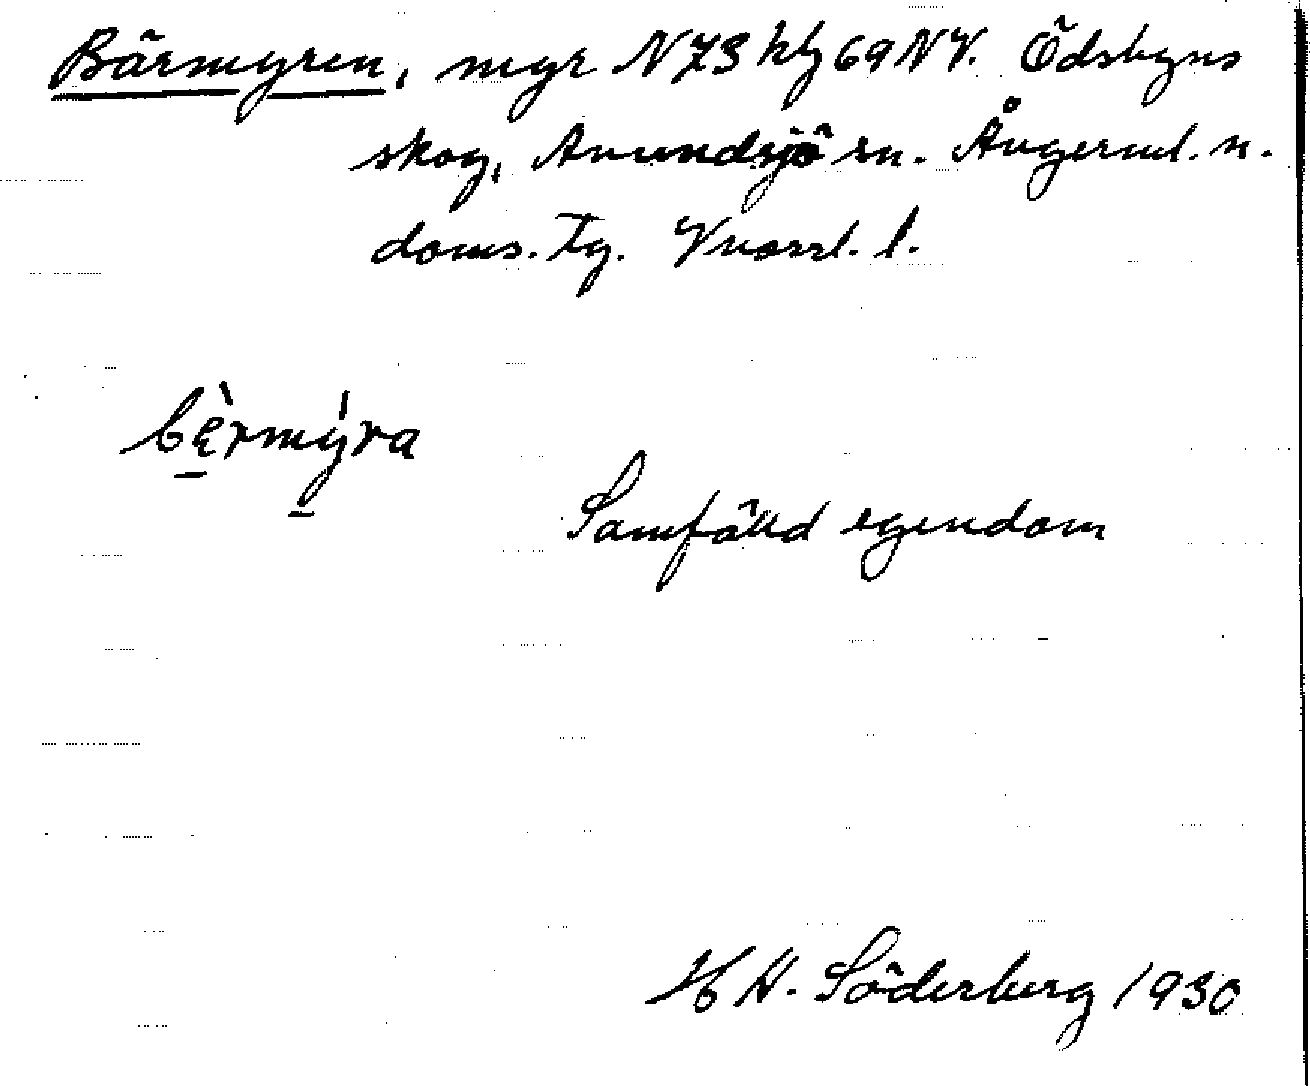 Bärmyren, myr N73 kbl 69 NV. Ödsbyns
skog, Anundsjö sn. Ångerml. n.
doms. tg. Vnorrl. l.
bèrmýra
Samfälld egendom
H H. Söderberg 1930